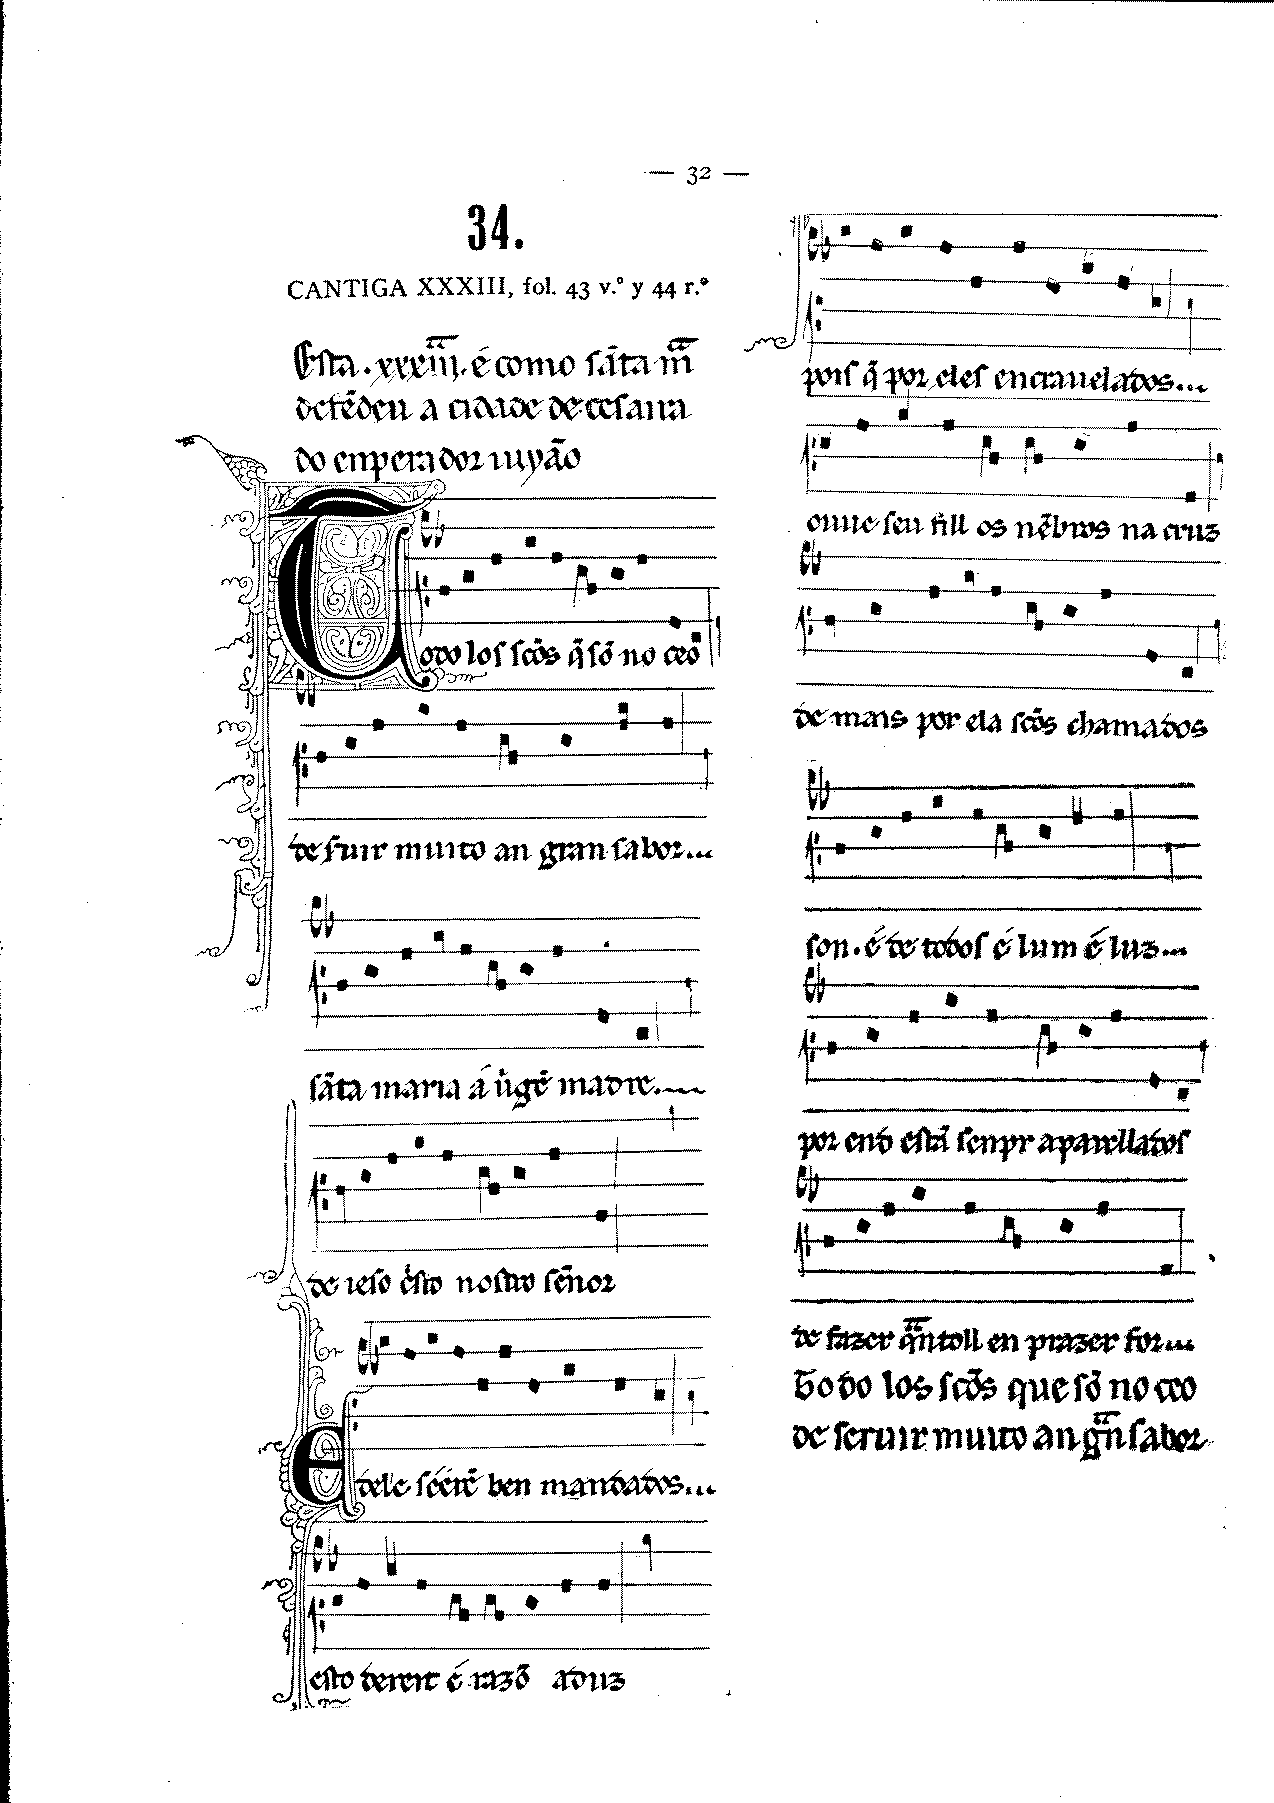 — 32 —
34.
CANTIGA XXXIII, fol. 43 v.º y 44 r.º
Esta .xxxiii. é como sãta m̃
defẽdeu a cidade de cesaira
do enperador iuyão
Todo los scõs q̃ sõ no ceo
de fuir muito an gran sabor...
sãta maria a uͥgẽ madre.
de ieso cͥsto nostro sẽnor
E dele séerẽ ben mandados...
esto dereit é razõ aduz
pois q̃ por eles encrauelados...
ouue seu fill os nẽbros na cruz
de mais por ela scõs chamados
son. é de todos é lum é luz...
por end estã senpr aparellados
de fazer q̃ntoll en prazer for...
Todo los scõs que sõ no ceo
de seruir muito an g̃n sabor